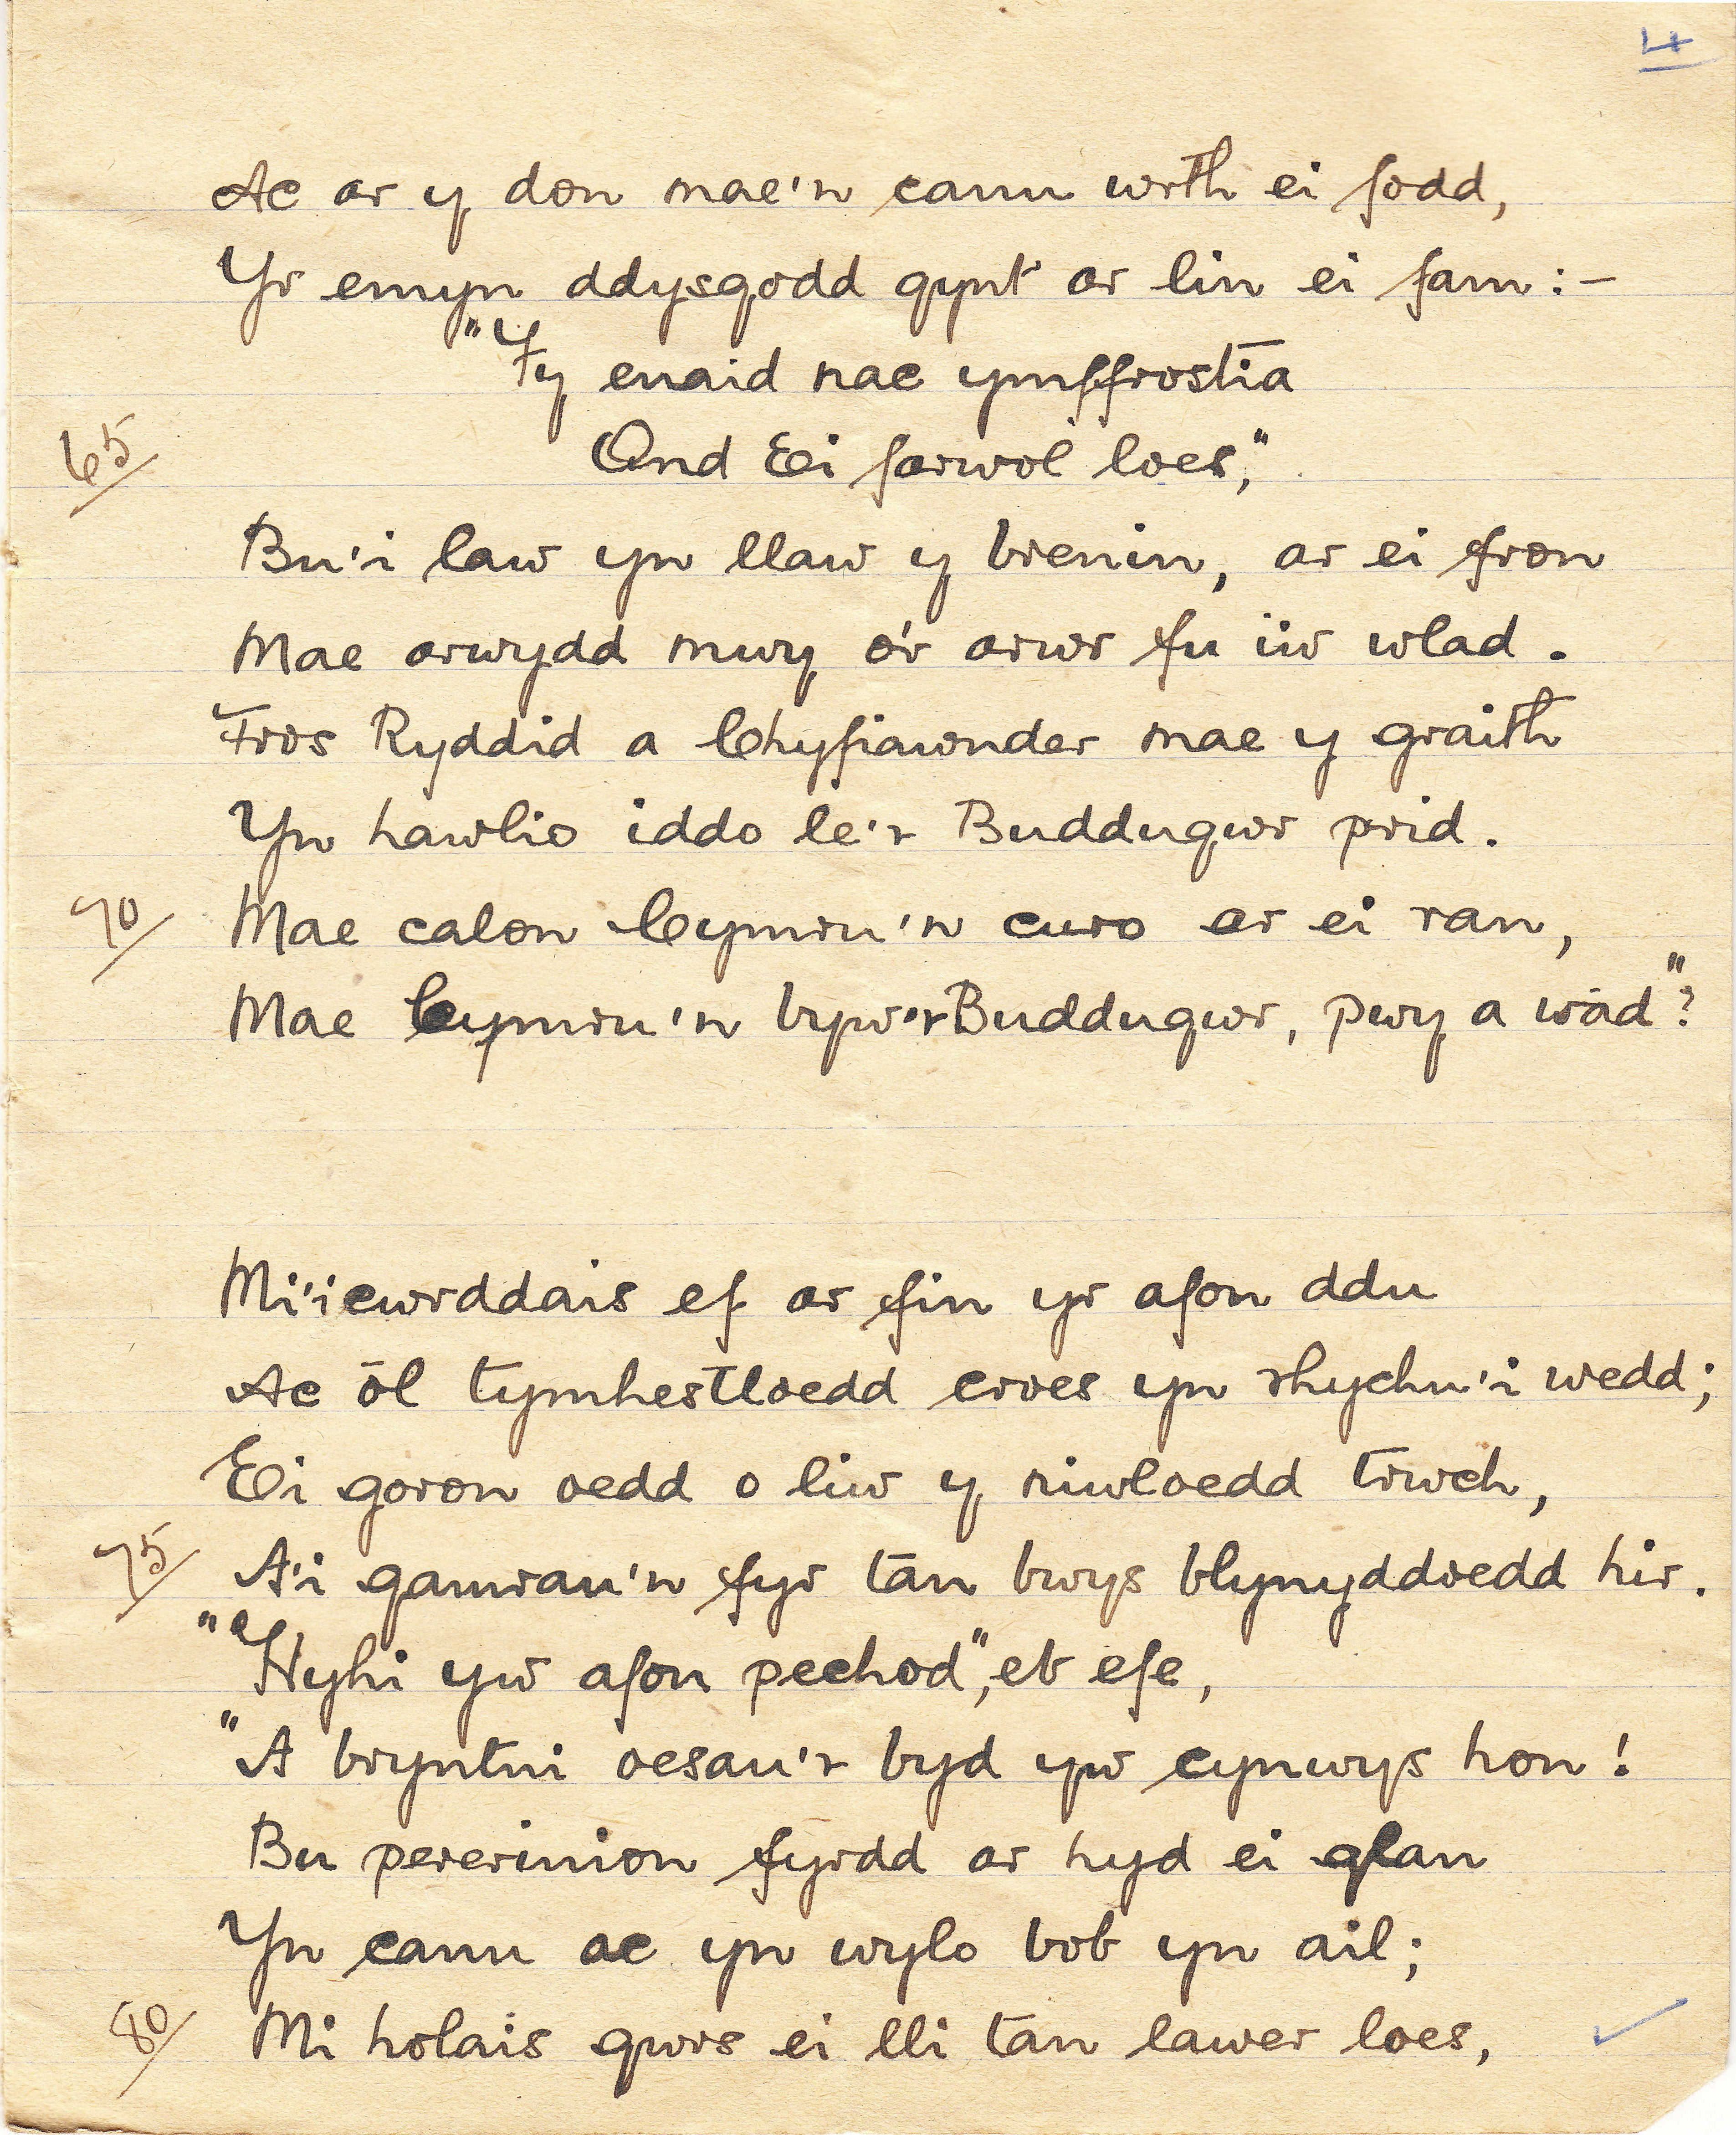 4
Ac ar y don mae'n canu wrth ei fodd,
Yr emyn ddysgodd gynt ar lin ei fam:-
"Fy enaid nac ymffrostia
65 Ond Ei farwol loes,"
Bu'i law yn llaw y brenin, ar ei fron
Mae arwydd mwy o'r arwr fu i'w wlad.
Tros Ryddid a Chyfiawnder mae y graith
Yn hawlio iddo le'r Buddugwr prid.
70 Mae calon Cymru'n curo ar ei ran,
Mae Cymru'n byw'r Buddugwr, pwy a wâd"?
Mi'i cwrddais ef ar fin yr afon ddu
Ac ôl tymhestloedd croes yn rhychu'i wedd;
Ei goron oedd o liw y niwloedd trwch,
75 A'i gamrau'n fyr tan bwys blynyddoedd hir.
"Hyhi yw afon pechod", eb efe,
"A bryntni oesau'r byd yw cynwys hon!
Bu pererinion fyrdd ar hyd ei glan
Yn canu ac yn wylo bob yn ail;
80 Mi holais gwrs ei lli tan lawer loes,